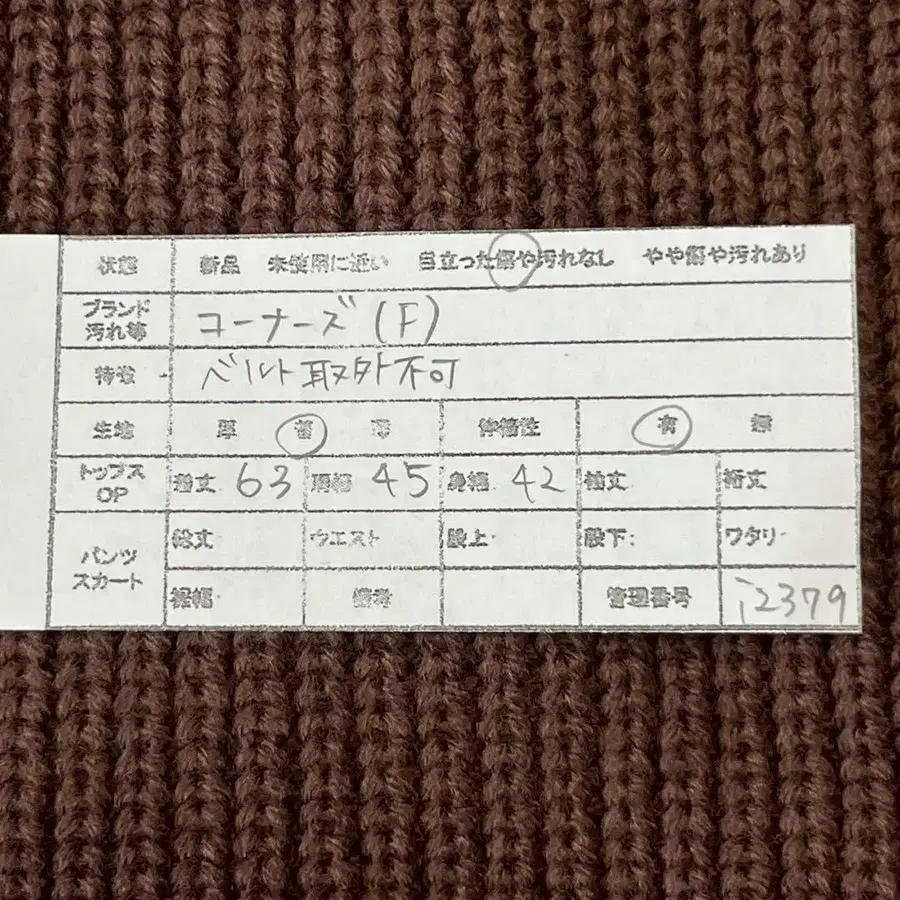 状態 新品 未使用に近い 目立った傷や汚れなし やや傷や汚れあり
ブランド
汚れ等 コーナーズ(F)
特徴 ベルト取外不可
生地 厚 普 薄 伸縮性 有 無
トップス
OP 着丈 63 肩幅 45 身幅 42 袖丈 裄丈
パンツ
スカート 総丈 ウエスト 股上 股下: ワタリ
裾幅 備考 管理番号 i2379